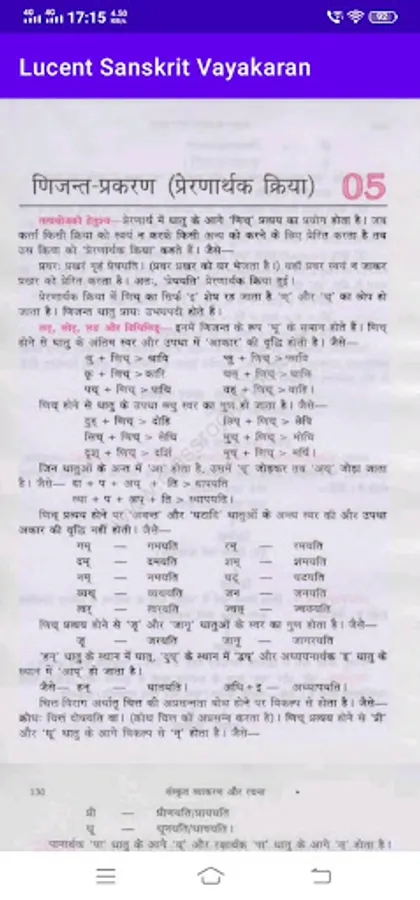 17:15 4.50 KB/S 92
Lucent Sanskrit Vayakaran
णिजन्त-प्रकरण (प्रेरणार्थक क्रिया) 05
प्रेरणार्थ में धातु के आगे 'णिच्' प्रत्यय का प्रयोग होता है। जब
कर्ता किसी क्रिया को स्वयं न करके किसी अन्य को करने के लिए प्रेरित करता है तब
उस क्रिया को 'प्रेरणार्थक क्रिया' कहते हैं। जैसे—
प्रवरः प्रखरं गृहं प्रेषयति। (प्रवर प्रखर को घर भेजता है।) यहाँ प्रवर स्वयं न जाकर
प्रखर को प्रेरित करता है। अतः, 'प्रेषयति' प्रेरणार्थक क्रिया हुई।
प्रेरणार्थक क्रिया में णिच् का सिर्फ 'इ' शेष रह जाता है 'ण्' और 'च्' का लोप हो
जाता है। णिजन्त धातु प्रायः उभयपदी होते हैं।
लट्, लोट्, लङ और विधिलिङ्— इनमें णिजन्त के रूप 'भू' के समान होते हैं। णिच्
होने से धातु के अंतिम स्वर और उपधा में 'आकार' की वृद्धि होती है। जैसे—
कृ + णिच् > कारि
पच् + णिच् > पाचि वह् + णिच् > वाहि।
णिच् होने से धातु के उपधा लघु स्वर का गुण हो जाता है। जैसे—
दुह् + णिच् > दोहि
मुच् + णिच् > मोचि
दृश् + णिच् > दर्शि
जिन धातुओं के अन्त में 'आ' होता है, उसमें 'प्' जोड़कर तब 'अय्' जोड़ा जाता
है। जैसे— दा + प + अय् + ति > दापयति
स्था + प + अय् + ति > स्थापयति।
णिच् प्रत्यय होने पर और 'घटादि' धातुओं के अन्त्य स्वर की और उपधा
अकार की वृद्धि नहीं होती। जैसे—
गम् — गमयति रम् — रमयति
दम् — दमयति शम् — शमयति
नम् — नमयति घट् — घटयति
व्यथ् — व्यथयति जन — जनयति
त्वर् — त्वरयति ज्वल् — ज्वलयति
णिच् प्रत्यय होने से 'जृ' और 'जागृ' धातुओं के स्वर का गुण होता है। जैसे—
जृ — जरयति जागृ — जागरयति
'हन्' धातु के स्थान में घातृ, 'दुष्' के स्थान में 'दूष्' और अध्ययनार्थक 'इ' धातु के
स्थान में 'आप्' हो जाता है।
जैसे— हन् — घातयति। अधि + इ — अध्यापयति।
चित्त विराग अर्थात् चित्त की अप्रसन्नता बोध होने पर विकल्प से होता है। जैसे—
क्रोधः चित्तं दोषयति वा। (क्रोध चित्त को अप्रसन्न करता है)। णिच् प्रत्यय होने से 'प्री'
और 'धू' धातु के आगे विकल्प से 'न्' होता है। जैसे—
130 संस्कृत व्याकरण और रचना
प्री — प्रीणयति/प्राययति
धू — धूनयति/धावयति।
पानार्थक 'पा' धातु के आगे 'य्' और रक्षार्थक 'पा' धातु के आगे 'ल्' होता है।